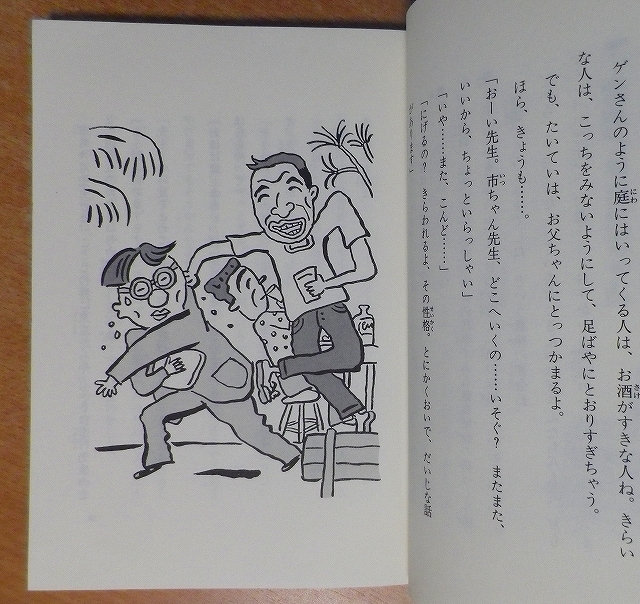 ゲンさんのように庭にはいってくる人は、お酒がすきな人ね。きらい
な人は、こっちをみないようにして、足ばやにとおりすぎちゃう。
でも、たいていは、お父ちゃんにとっつかまるよ。
ほら、きょうも……。
「おーい先生。市ちゃん先生、どこへいくの……いそぐ？　またまた、
いいから、ちょっといらっしゃい」
「いや……また、こんど……」
「にげるの？　きらわれるよ、その性格。とにかくおいで、だいじな話
があります」